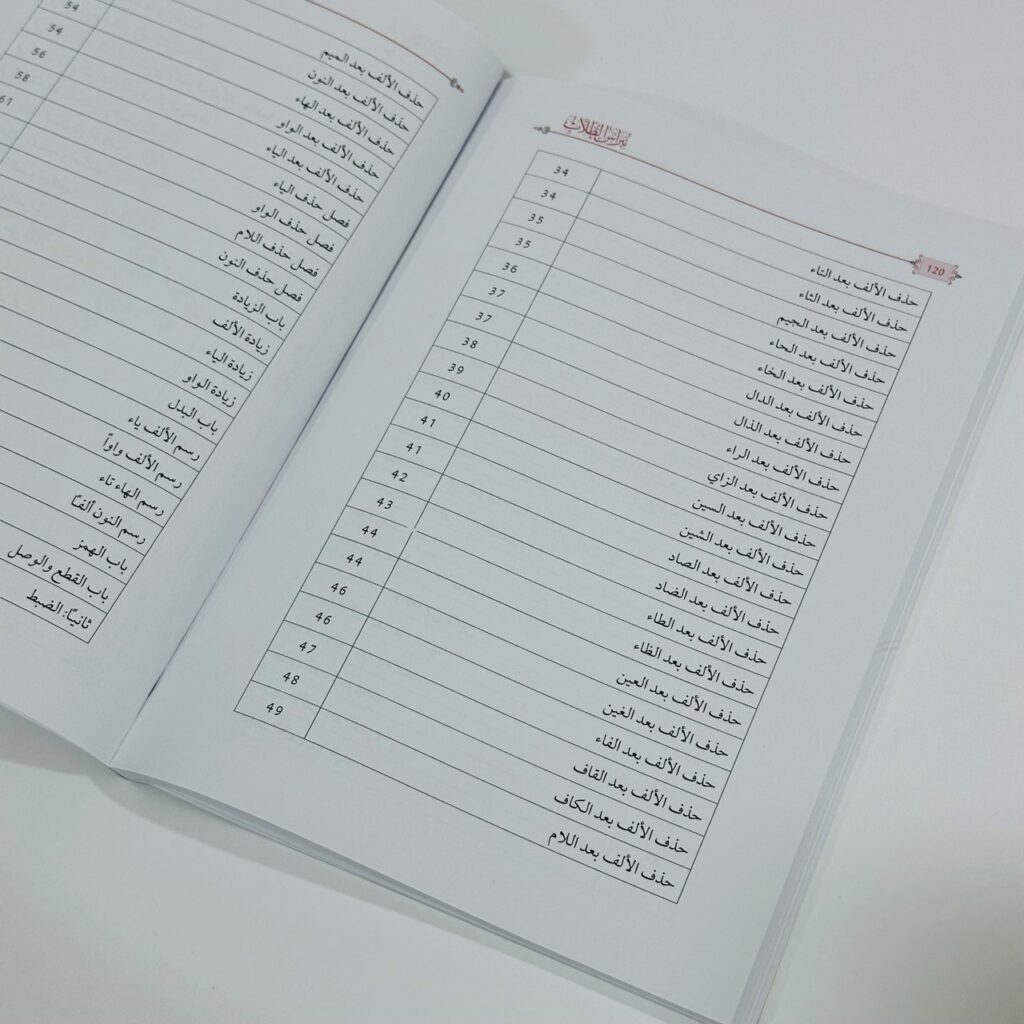 نبراس الطلاب
120
حذف الألف بعد التاء 34
حذف الألف بعد الثاء 34
حذف الألف بعد الجيم 35
حذف الألف بعد الحاء 35
حذف الألف بعد الخاء 36
حذف الألف بعد الدال 37
حذف الألف بعد الذال 37
حذف الألف بعد الراء 38
حذف الألف بعد الزاي 39
حذف الألف بعد السين 40
حذف الألف بعد الشين 41
حذف الألف بعد الصاد 41
حذف الألف بعد الضاد 42
حذف الألف بعد الطاء 43
حذف الألف بعد الظاء 44
حذف الألف بعد العين 44
حذف الألف بعد الغين 46
حذف الألف بعد الفاء 46
حذف الألف بعد القاف 47
حذف الألف بعد الكاف 48
حذف الألف بعد اللام 49
حذف الألف بعد الميم
حذف الألف بعد النون
حذف الألف بعد الهاء
حذف الألف بعد الواو
حذف الألف بعد الياء
فصل حذف الياء
فصل حذف الواو
فصل حذف اللام
فصل حذف النون
باب الزيادة
زيادة الألف
زيادة الياء
زيادة الواو
باب البدل
رسم الألف ياء
رسم الألف واواً
رسم الهاء تاء
رسم النون ألفًا
باب الهمز
باب القطع والوصل
ثانيًا: الضبط
54
54
56
58
61